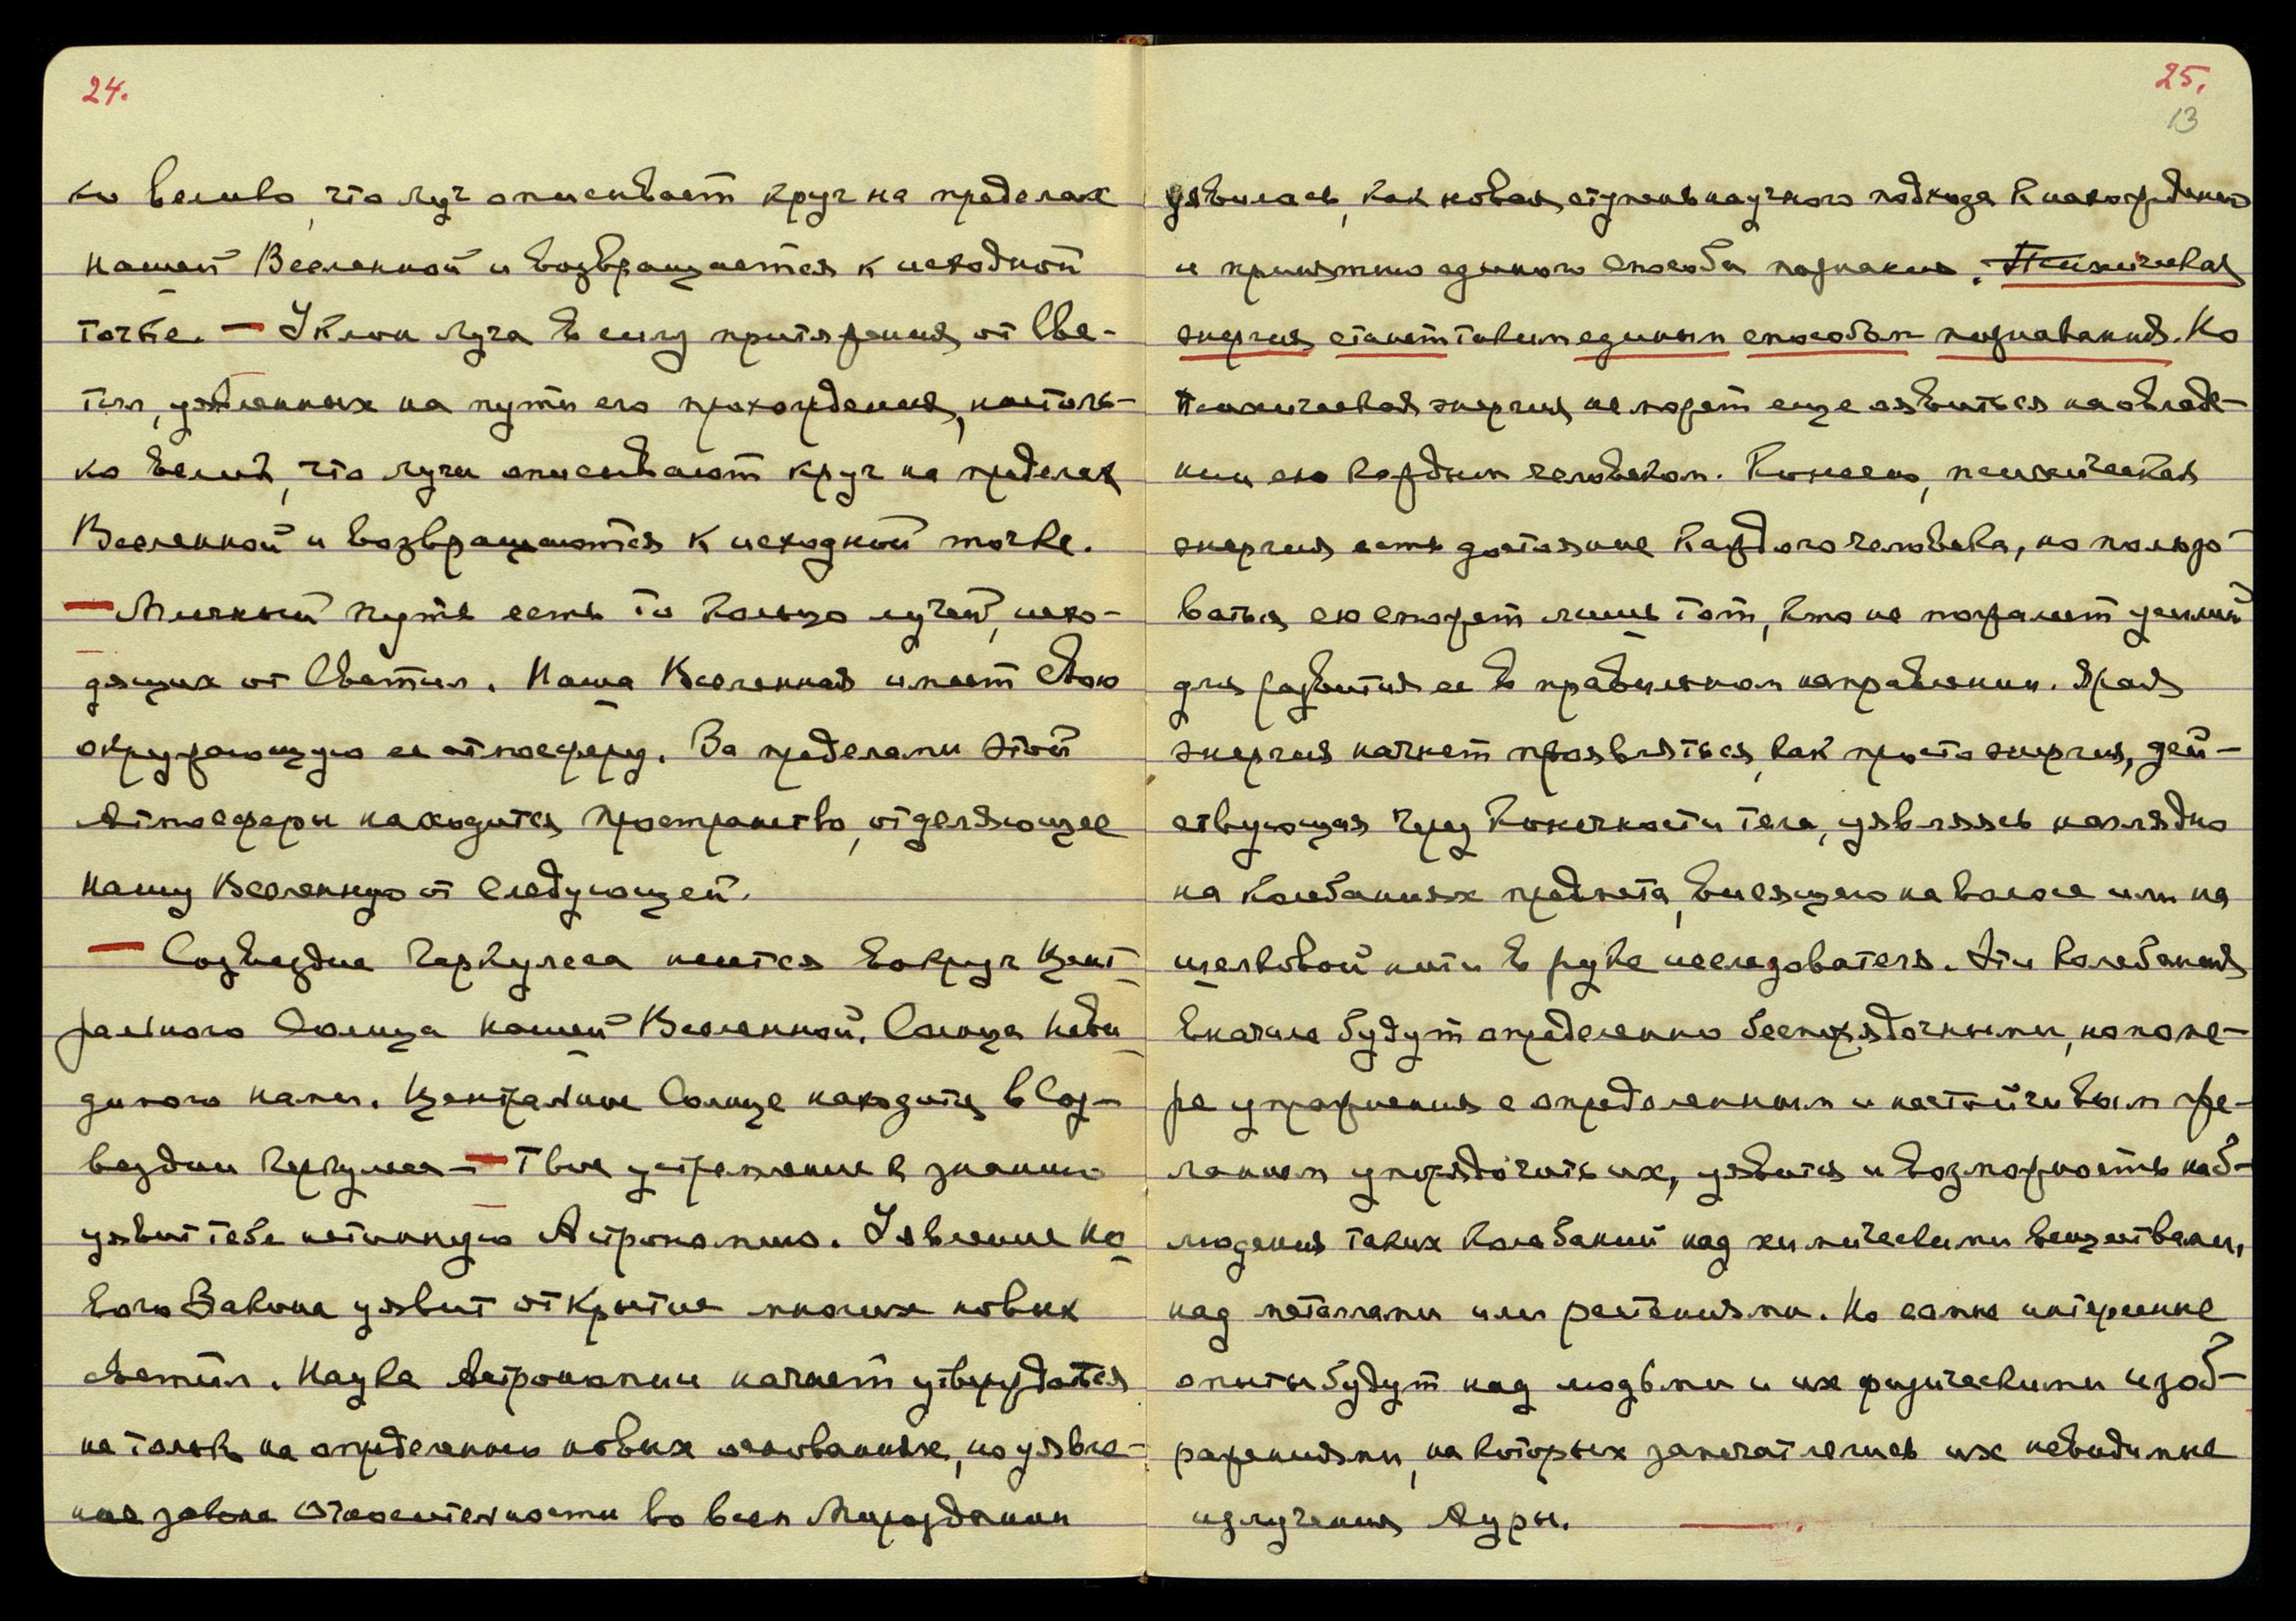 24.
ко велико, что луч описывает круг на пределах
нашей Вселенной и возвращается к исходной
точке. — Уклон луча в силу притяжения от Све-
тил, уявленных на пути его прохождения, настоль-
ко велик, что лучи описывают круг на пределах
Вселенной и возвращаются к исходной точке.
— Млечный путь есть то кольцо лучей, исхо-
дящих от Светил. Наша Вселенная имеет свою
окружающую ее атмосферу. За пределами этой
Атмосферы находится пространство, отделяющее
нашу Вселенную от следующей.
— Созвездие Геркулеса несется вокруг Цент-
рального Солнца нашей Вселенной, Солнца неви-
димого нами. Центральное Солнце находится в Соз-
вездии Геркулеса — Твое устремление к знанию
уявит тебе истинную Астрономию. Уявление Но-
вого Закона уявит открытие многих новых
светил. Наука Астрономии начнет утверждаться
не только на определенно новых основаниях, но уявле-
ние закона относительности во всем Мироздании
25.
13
уявилась, как новая ступень научного подхода к нахождению
и принятию единого способа познания. Психическая
энергия станет таким единым способом познавания. Но
Психическая энергия не может еще оявиться на овладе-
нии ею каждым человеком. Конечно, психическая
энергия есть достояние каждого человека, но пользо-
ваться ею сможет лишь тот, кто не пожалеет усилий
для развития ее в правильном направлении. Ярая
энергия начнет проявляться, как просто энергия, дей-
ствующая через конечности тела, уявляясь наглядно
на колебаниях предмета, висящего на волосе или на
шелковой нити в руке исследователя. Эти колебания
вначале будут определенно беспорядочными, но по ме-
ре упражнения с определенным и настойчивым же-
ланием упорядочить их, уявится и возможность наб-
людения таких колебаний над химическими веществами,
над металлами или растениями. Но самые интересные
опыты будут над людьми и их физическими изоб-
ражениями, на которых запечатлелись их невидимые
излучения Ауры.